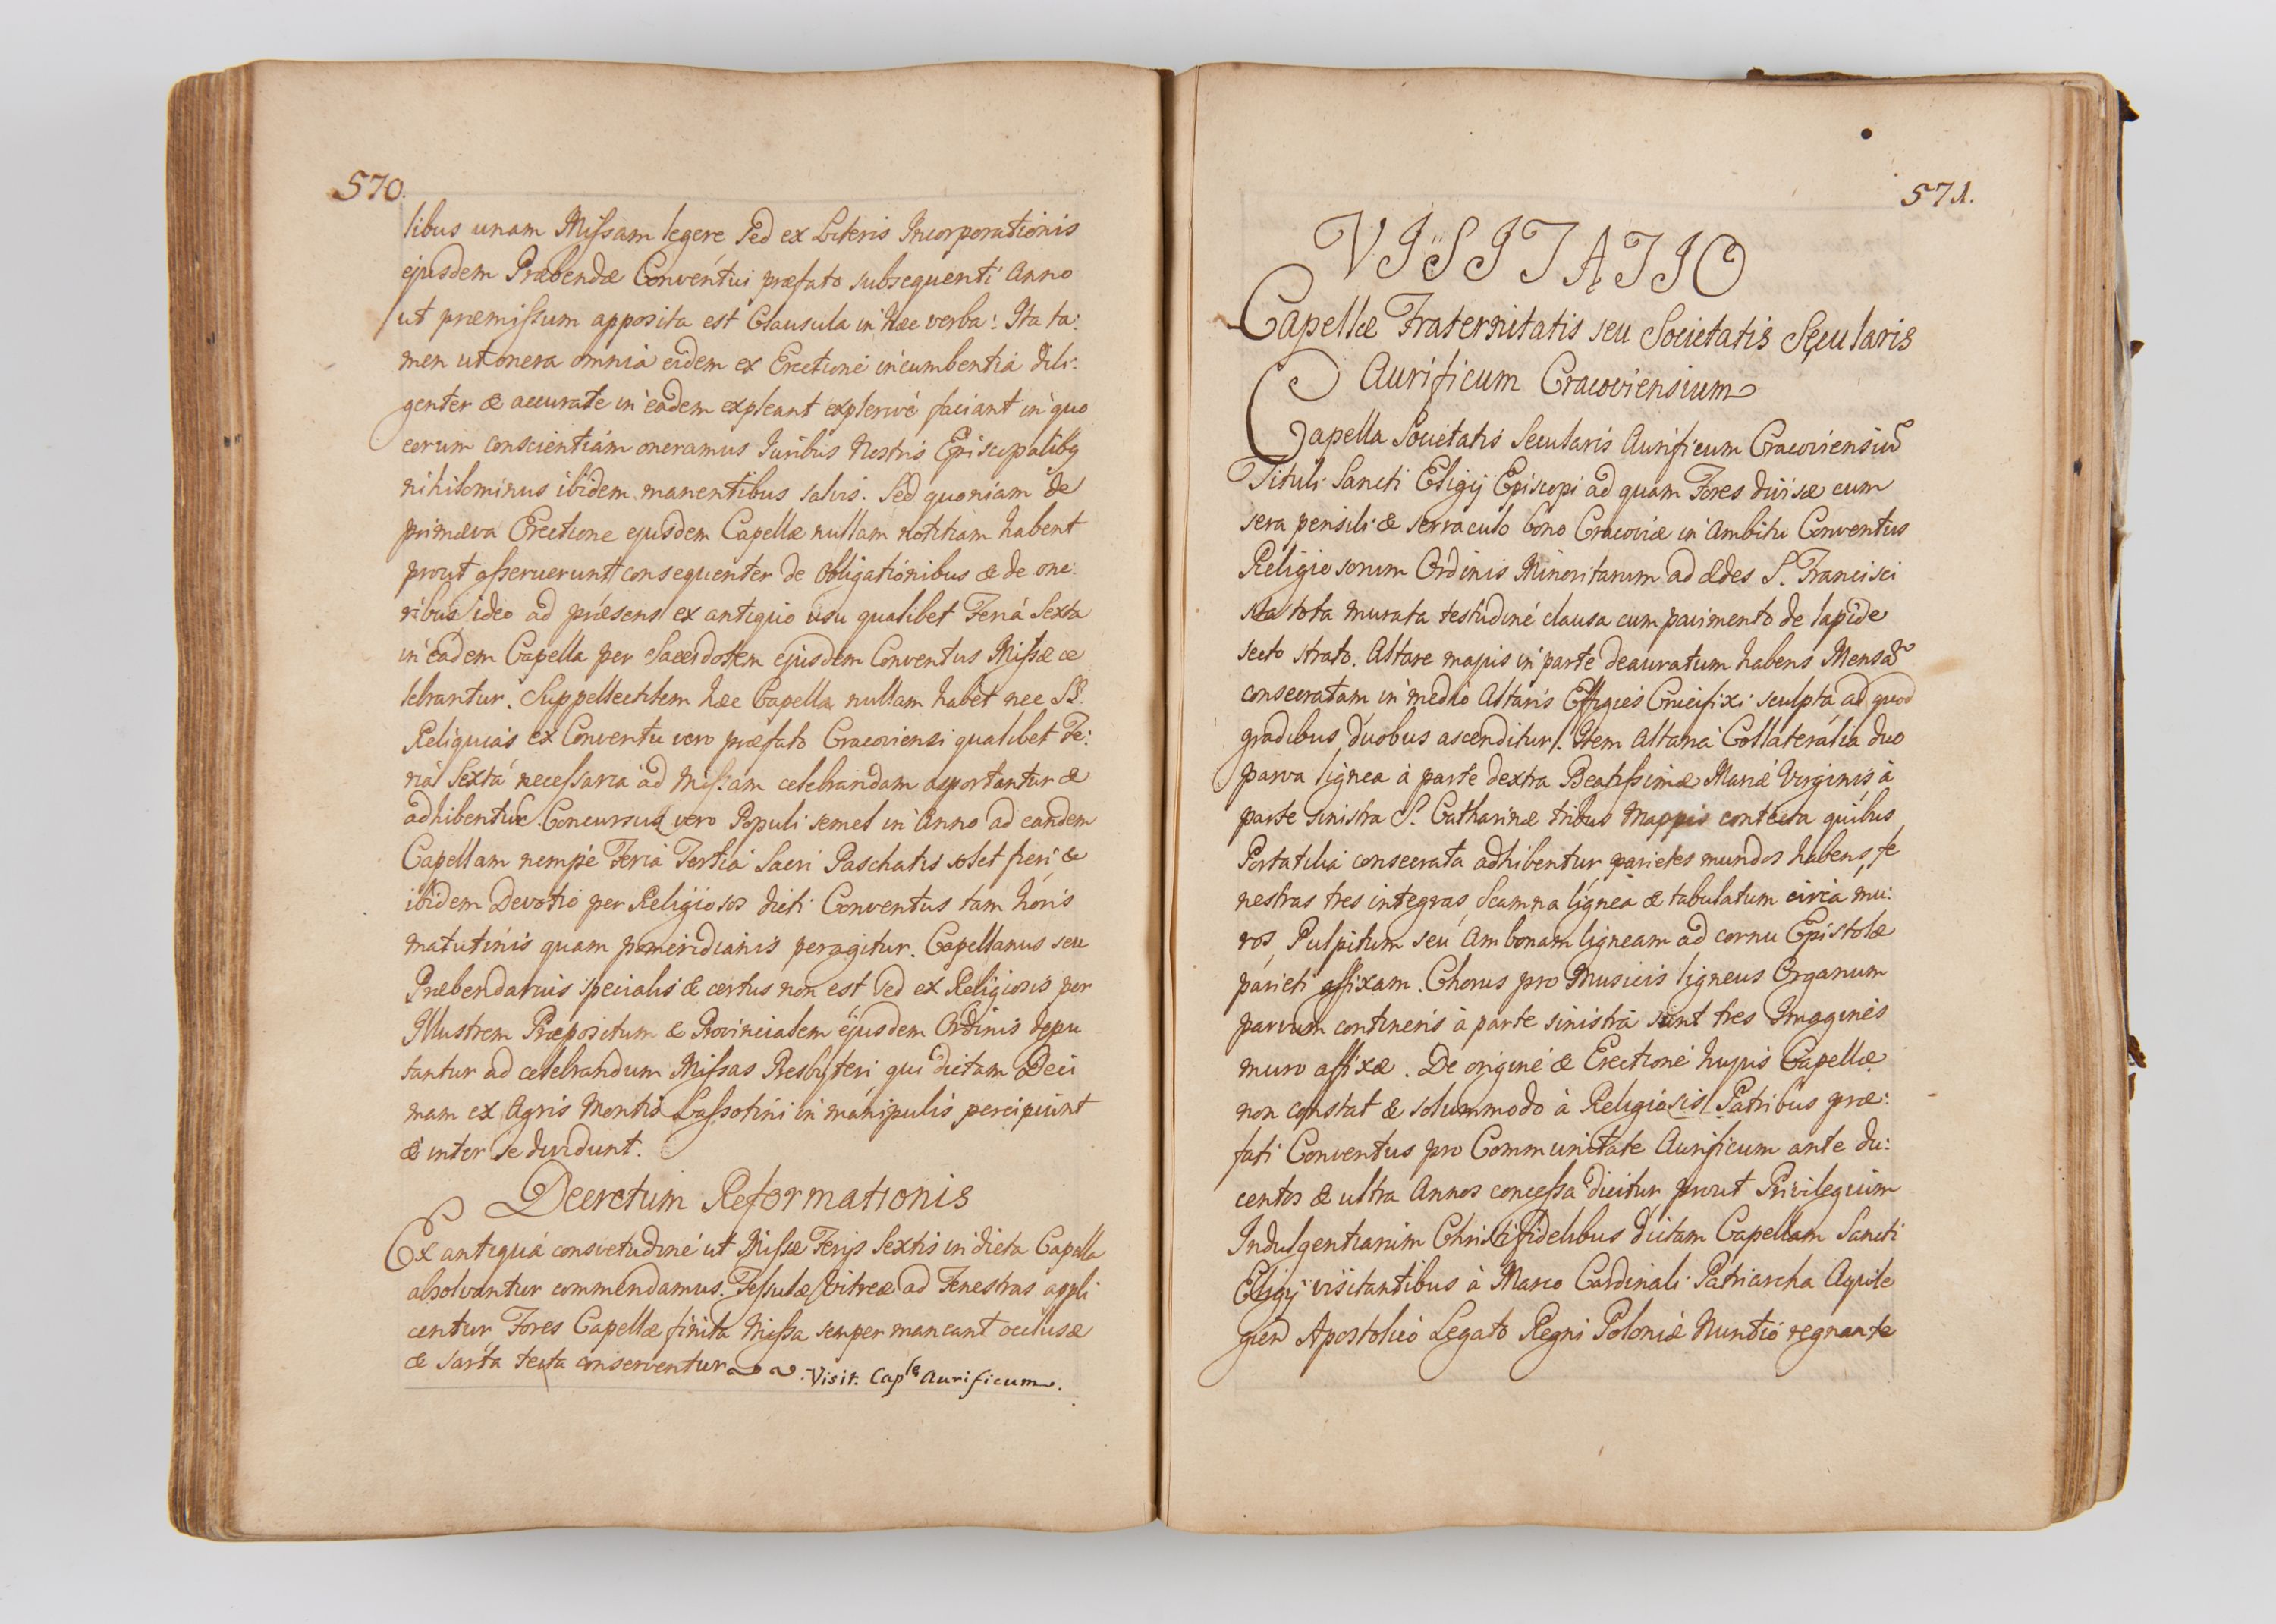 570.
libus unam Missam legere Sed ex Literis Incorporationis
ejusdem Præbendæ Conventui præfato subsequenti Anno
ut præmissum apposita est Clausula in hæc verba: Ita ta:
men ut onera omnia eidem ex Erectione incumbentia dili:
genter & accurate in eadem expleant explerive faciant in quo
eorum conscientiam oneramus Iuribus Nostris Episcopalibq
nihilominus ibidem manentibus salvis. Sed quoniam de
primæva Erectione ejusdem Capellæ nullam notitiam habent
prout asseruerunt consequenter de Obligationibus & de one:
ribus ideo ad præsens ex antiquo usu qualibet Feria Sexta
in eadem Capella per Sacerdotem ejusdem Conventus Missæ ce
lebrantur. Suppellectilem hæc Capella nullam habet nec SS.
Reliquias ex Conventu vero præfato Cracoviensi qualibet Fe:
ria Sexta necessaria ad Missam celebrandam asportantur &
adhibentur. Concursus vero Populi semel in Anno ad eandem
Capellam nempe Feria Tertia Sacri Paschatis solet fieri, &
ibidem Devotio per Religiosos dicti Conventus tam horis
matutinis quam pomeridianis peragitur. Capellanus seu
Præbendarius specialis & certus non est sed ex Religiosis per
Illustrem Præpositum & Provincialem ejusdem Ordinis depu
tantur ad celebrandum Missas Presbyteri qui dictam Deci
mam ex Agris Montis Lassotini in manipulis percipiunt
& inter se dividunt.
Decretum Reformationis
Ex antiqua consvetudine ut Missæ Ferijs Sextis in dicta Capella
absolvantur commendamus. Tessulæ Vitreæ ad Fenestras appli
centur Fores Capellæ finita Missa semper maneant occlusæ
& sarta tecta conserventur
Visit. Caplæ Aurificum.
571.
VISITATIO
Capellæ Fraternitatis seu Societatis Secularis
Aurificum Cracoviensium
Capella Societatis Secularis Aurificum Cracoviensiū
Tituli Sancti Eligij Episcopi ad quam Fores divisæ cum
sera pensili & serraculo bono Cracoviæ in Ambitu Conventus
Religiosorum Ordinis Minoritarum ad ædes S. Francisci
sita tota murata testudine clausa cum pavimento de lapide
secto strato. Altare majus in parte deauratum habens Mensā
consecratam in medio Altaris Effigies Crucifixi sculpta ad quod
gradibus duobus ascenditur. Item Altaria Collateralia duo
parva lignea à parte dextra Beatissimæ Mariæ Virginis à
parte sinistra S. Catharinæ tribus Mappis contecta quibus
Portatilia consecrata adhibentur parietes mundos habens, fe
nestras tres integras, Scamna lignea & tabulatum circa mu:
ros, Pulpitum seu Ambonam ligneam ad cornu Epistolæ
parieti affixam. Chorus pro Musicis ligneus Organum
parvum continens à parte sinistra sunt tres Imagines
muro affixæ. De origine & Erectione hujus Capellæ
non constat & solummodo à Religiosis Patribus præ:
fati Conventus pro Communitate Aurificum ante du:
centos & ultra Annos concessa dicitur prout Privilegium
Indulgentiarum Christifidelibus dictam Capellam Sancti
Eligij visitantibus à Marco Cardinali Patriarcha Aquile
gien Apostolico Legato Regni Poloniæ Nuntio regnante